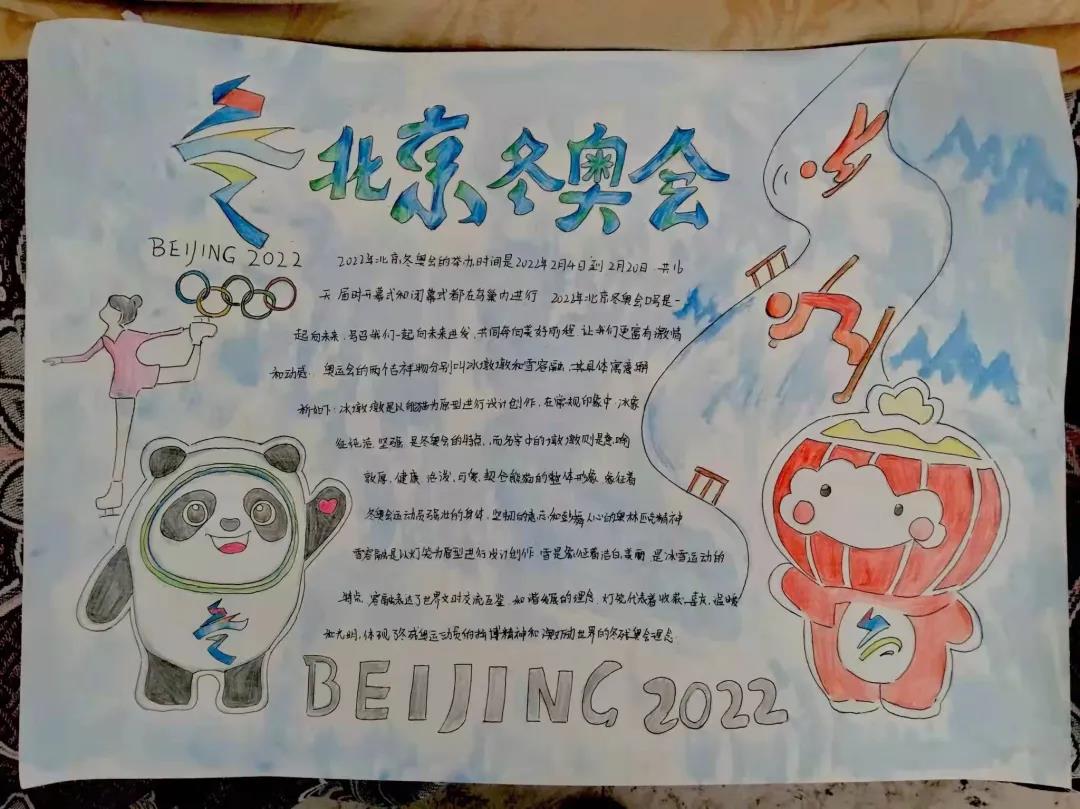 北京冬奥会
BEIJING 2022
2022年北京冬奥会的举办时间是2022年2月4日到2月20日 共16
天 届时开幕式和闭幕式都在鸟巢内进行 2022年北京冬奥会口号是一
起向未来,号召我们一起向未来进发,共同奔向美好前程 让我们更富有激情
和动感. 奥运会的两个吉祥物分别叫冰墩墩和雪容融,其具体寓意解
析如下:冰墩墩是以熊猫为原型进行设计创作,在常规印象中,冰象
征纯洁,坚强,是冬奥会的特点,而名字中的墩墩则是意喻
敦厚,健康,活泼,可爱,契合熊猫的整体形象,象征着
冬奥会运动员强壮的身体,坚韧的意志和鼓舞人心的奥林匹克精神
雪容融是以灯笼为原型进行设计创作,雪是象征着洁白,美丽,是冰雪运动的
特点,容融表达了世界文明交流互鉴,和谐发展的理念,灯笼代表着收获,喜庆,温暖
和光明,体现了冬残奥运动员的拼搏精神和激励世界的冬残奥会理念.
BEIJING 2022